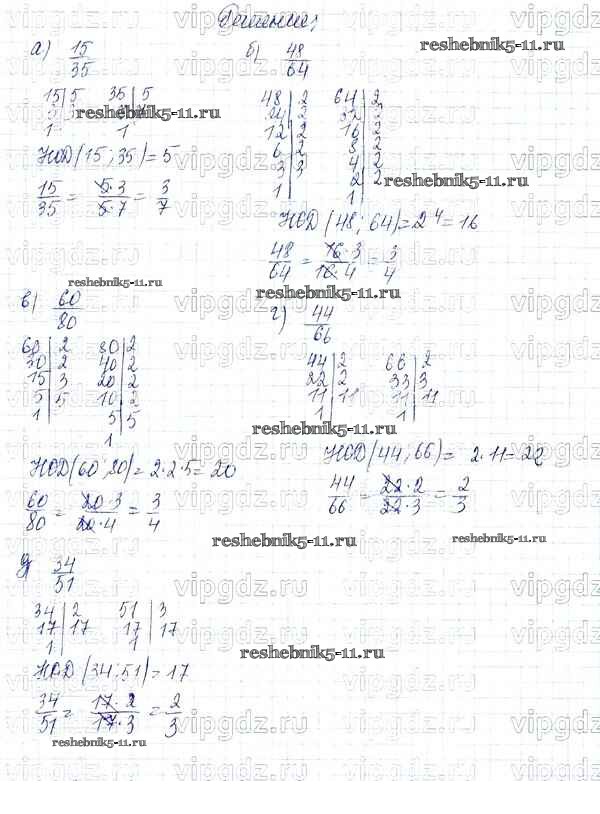 Решение:
а) 15/35
15|5 35|5
1 1
НОД(15; 35)=5
15/35 = 5·3/5·7 = 3/7
б) 48/64
48|2 64|2
24|2 32|2
12|2 16|2
6|2 8|2
3|3 4|2
1 2|2
1
НОД(48; 64)=2⁴=16
48/64 = 16·3/16·4 = 3/4
в) 60/80
60|2 80|2
30|2 40|2
15|3 20|2
5|5 10|2
1 5|5
1
НОД(60; 80)=2·2·5=20
60/80 = 20·3/20·4 = 3/4
г) 44/66
44|2 66|2
22|2 33|3
11|11 11|11
1 1
НОД(44; 66)= 2·11=22
44/66 = 22·2/22·3 = 2/3
д) 34/51
34|2 51|3
17|17 17|17
1 1
НОД(34; 51)=17
34/51 = 17·2/17·3 = 2/3
reshebnik5-11.ru
reshebnik5-11.ru
reshebnik5-11.ru
reshebnik5-11.ru
reshebnik5-11.ru
reshebnik5-11.ru
reshebnik5-11.ru
reshebnik5-11.ru
reshebnik5-11.ru
reshebnik5-11.ru
vipgdz.ru